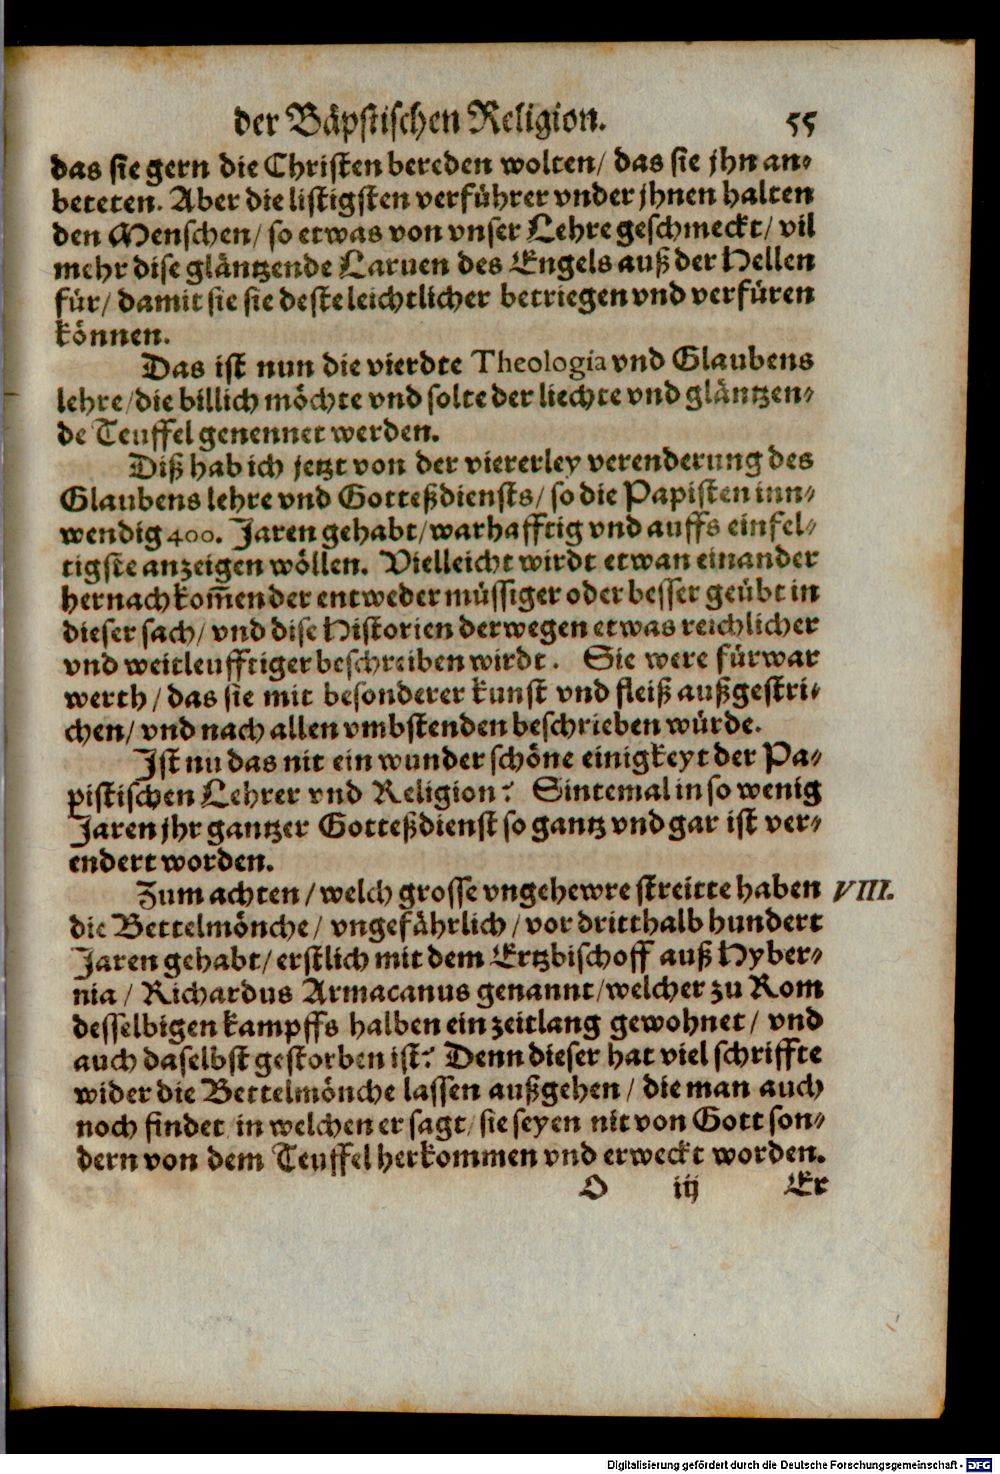 der Bäpstischen Religion. 55
das sie gern die Christen bereden wolten/ das sie jhn an-
beteten. Aber die listigsten verführer vnder jhnen halten
den Menschen/ so etwas von vnser Lehre geschmeckt/ vil
mehr dise gläntzende Laruen des Engels auß der Hellen
für/ damit sie sie deste leichtlicher betriegen vnd verfüren
können.
Das ist nun die vierdte Theologia vnd Glaubens
lehre/ die billich möchte vnd solte der liechte vnd gläntzen-
de Teuffel genennet werden.
Diß hab ich jetzt von der viererley verenderung des
Glaubens lehre vnd Gotteßdiensts/ so die Papisten inn-
wendig 400. Jaren gehabt/ warhafftig vnd auffs einfel-
tigste anzeigen wöllen. Vielleicht wirdt etwan einander
hernach kom̄ender entweder müssiger oder besser geübt in
dieser sach/ vnd dise Historien derwegen etwas reichlicher
vnd weitleufftiger beschreiben wirdt. Sie were fürwar
werth/ das sie mit besonderer kunst vnd fleiß außgestri-
chen/ vnd nach allen vmbstenden beschrieben würde.
Ist nu das nit ein wunder schöne einigkeyt der Pa-
pistischen Lehrer vnd Religion? Sintemal in so wenig
Jaren jhr gantzer Gotteßdienst so gantz vnd gar ist ver-
endert worden.
Zum achten/ welch grosse vngehewre streitte haben VIII.
die Bettelmönche/ vngefährlich/ vor dritthalb hundert
Jaren gehabt/ erstlich mit dem Ertzbischoff auß Hyber-
nia/ Richardus Armacanus genannt/ welcher zu Rom
desselbigen kampffs halben ein zeitlang gewohnet/ vnd
auch daselbst gestorben ist? Denn dieser hat viel schriffte
wider die Bettelmönche lassen außgehen/ die man auch
noch findet/ in welchen er sagt/ sie seyen nit von Gott son-
dern von dem Teuffel herkommen vnd erweckt worden.
O iij Er
Digitalisierung gefördert durch die Deutsche Forschungsgemeinschaft - DFG